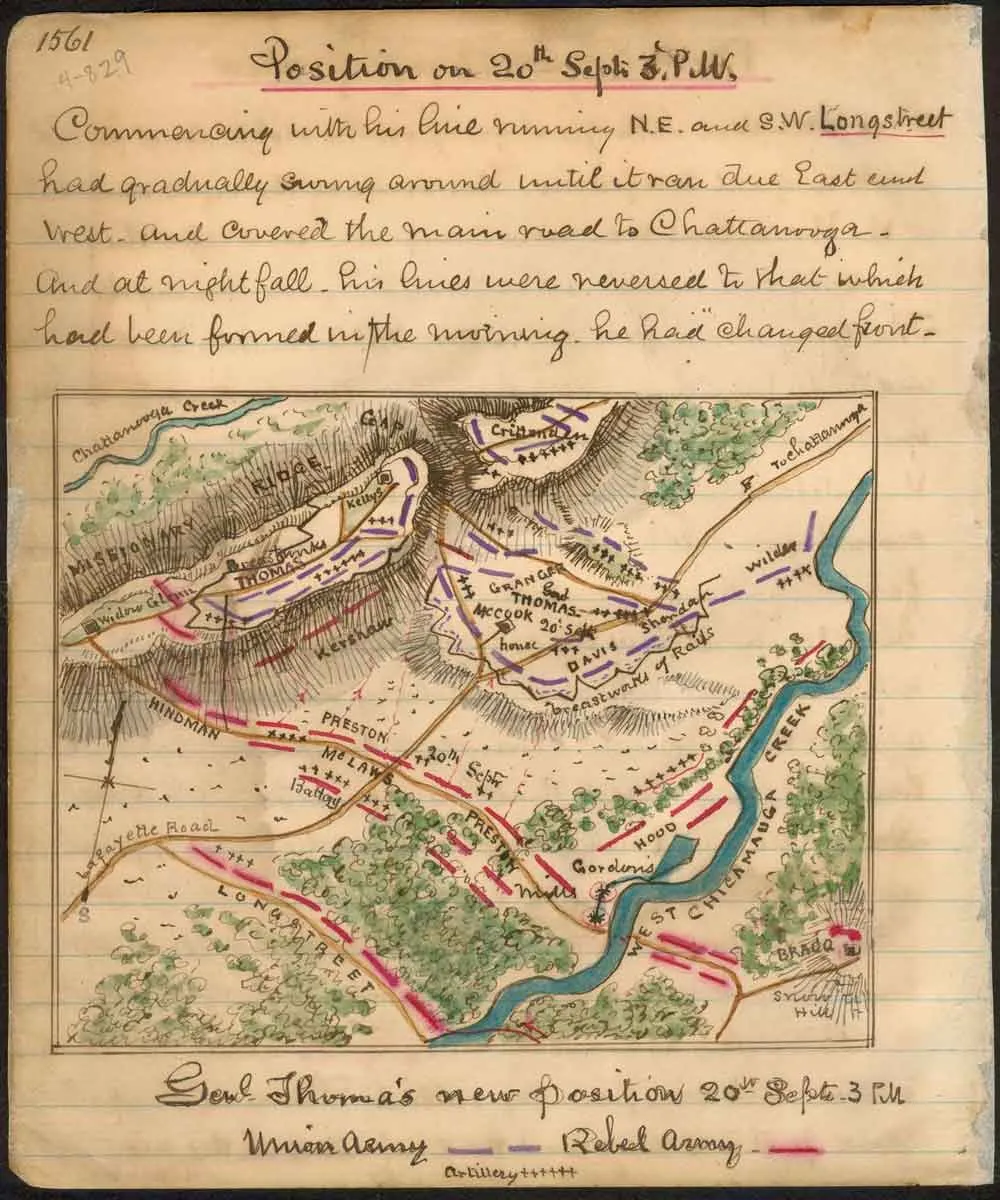 1561
4-829
Position on 20th Septr 3. P.M.
Commencing with his line running N.E. and S.W. Longstreet
had gradually swung around until it ran due East and
West - and covered the main road to Chattanooga -
And at nightfall - his lines were reversed to that which
had been formed in the morning. he had "changed front -
Chattanooga Creek
GAP
Crittenden
To Chattanooga
MISSIONARY RIDGE
Kellys
Breastworks
THOMAS
Wilder
GRANGER
and
THOMAS
McCOOK 20' Sept
house
Sheridan
DAVIS
breastworks of Rails
Widow Glenn
Kershaw
HINDMAN
PRESTON
McLAWS
20th Septr
Battery
PRESTON
HOOD
Gordon's
Mills
WEST CHICAMAUGA CREEK
Lafayette Road
S
LONGSTREET
BRAGG
Snow Hill
Genl. Thomas's new position 20th Sept. 3 PM
Union Army
Rebel Army -
Artillery ++++++